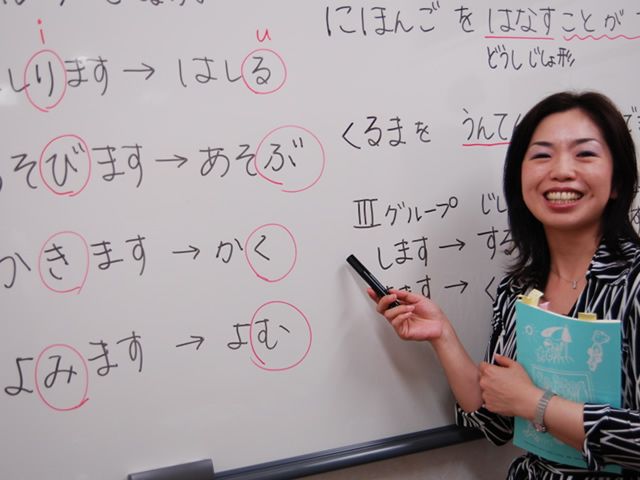 i u
します → はしる
そびます → あそぶ
かきます → かく
よみます → よむ
にほんごを はなすことが
どうしじしょ形
くるまを うんて
Ⅲグループ じし
します → する
ます → く